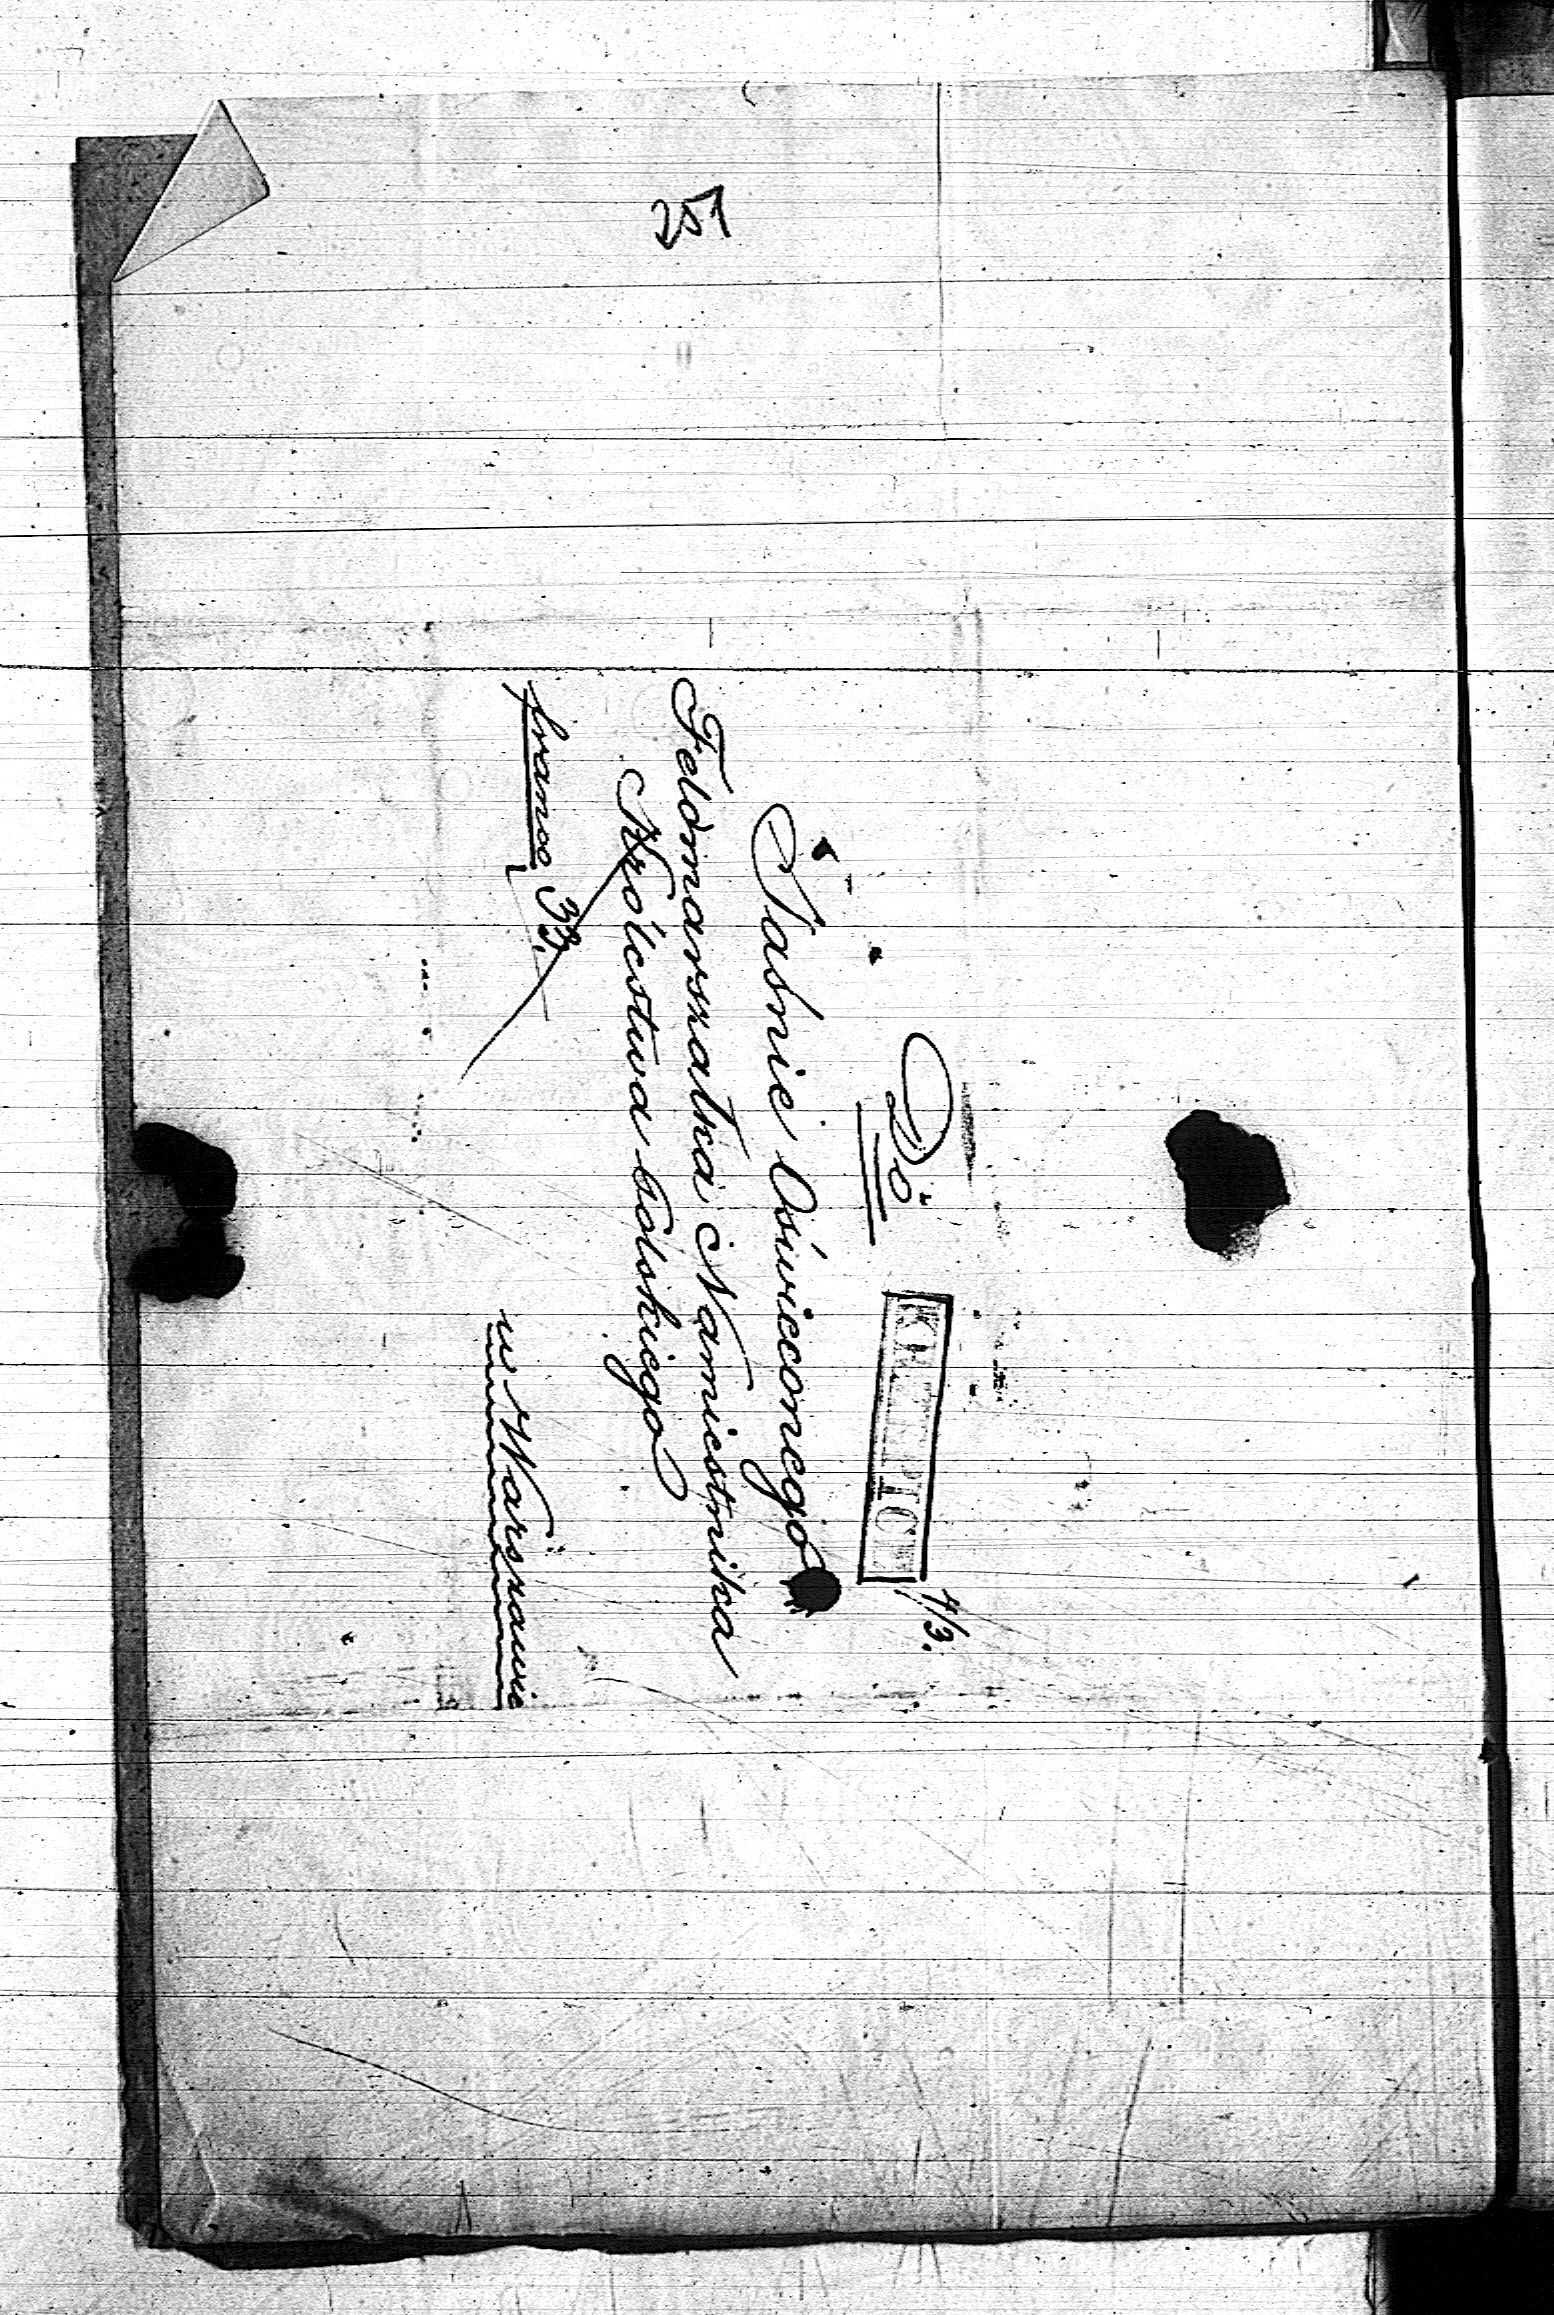 251
Do
KRZEPICE
4/3.
Jaśnie Oświeconego
Feldmarszałka Namiestnika
Królestwa Polskiego
franco 33.
w Warszawie